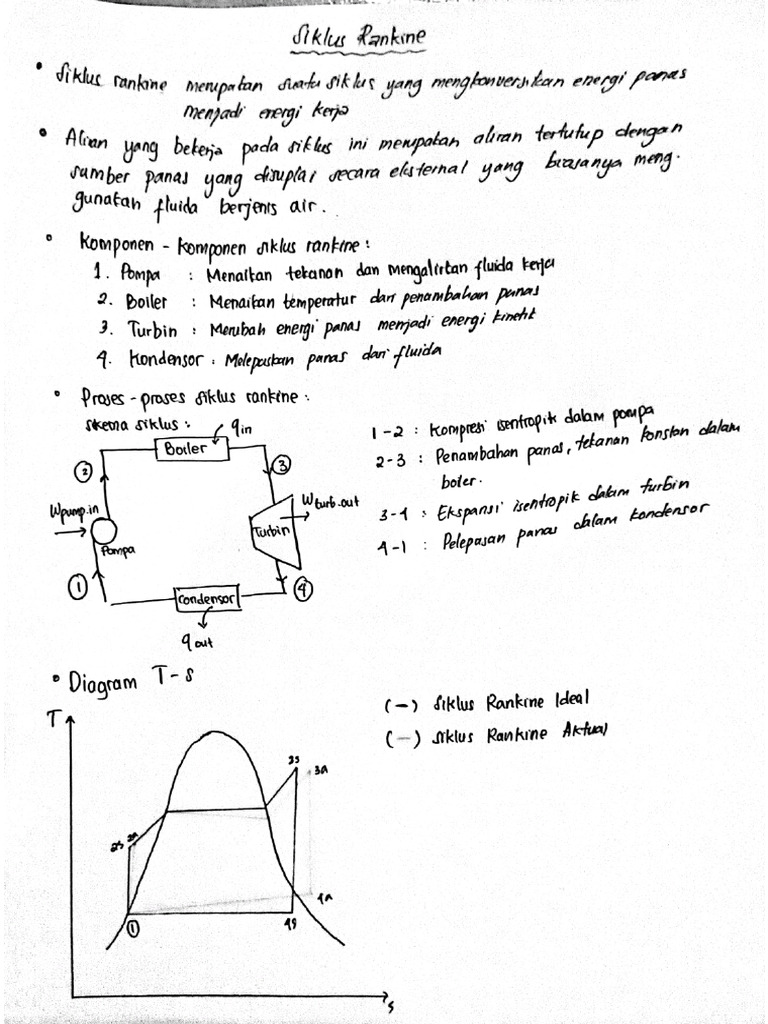 Siklus Rankine
• Siklus rankine merupakan suatu siklus yang mengkonversikan energi panas
menjadi energi kerja
• Aliran yang bekerja pada siklus ini merupakan aliran tertutup dengan
sumber panas yang disuplai secara eksternal yang biasanya meng-
gunakan fluida berjenis air.
• Komponen - komponen siklus rankine :
1. Pompa : Menaikan tekanan dan mengalirkan fluida kerja
2. Boiler : Menaikan temperatur dari penambahan panas
3. Turbin : Merubah energi panas menjadi energi kinetik
4. Kondensor : Melepaskan panas dari fluida
• Proses - proses siklus rankine :
skema siklus :
qin
Boiler
2
3
Wpump.in
Pompa
Wturb.out
Turbin
1
4
Condensor
qout
1-2 : Kompresi isentropik dalam pompa
2-3 : Penambahan panas, tekanan konstan dalam
boiler.
3-4 : Ekspansi isentropik dalam turbin
4-1 : Pelepasan panas dalam kondensor
• Diagram T-s
(-) Siklus Rankine Ideal
(-) Siklus Rankine Aktual
T
3s
3A
2s
2A
4A
1
4s
s